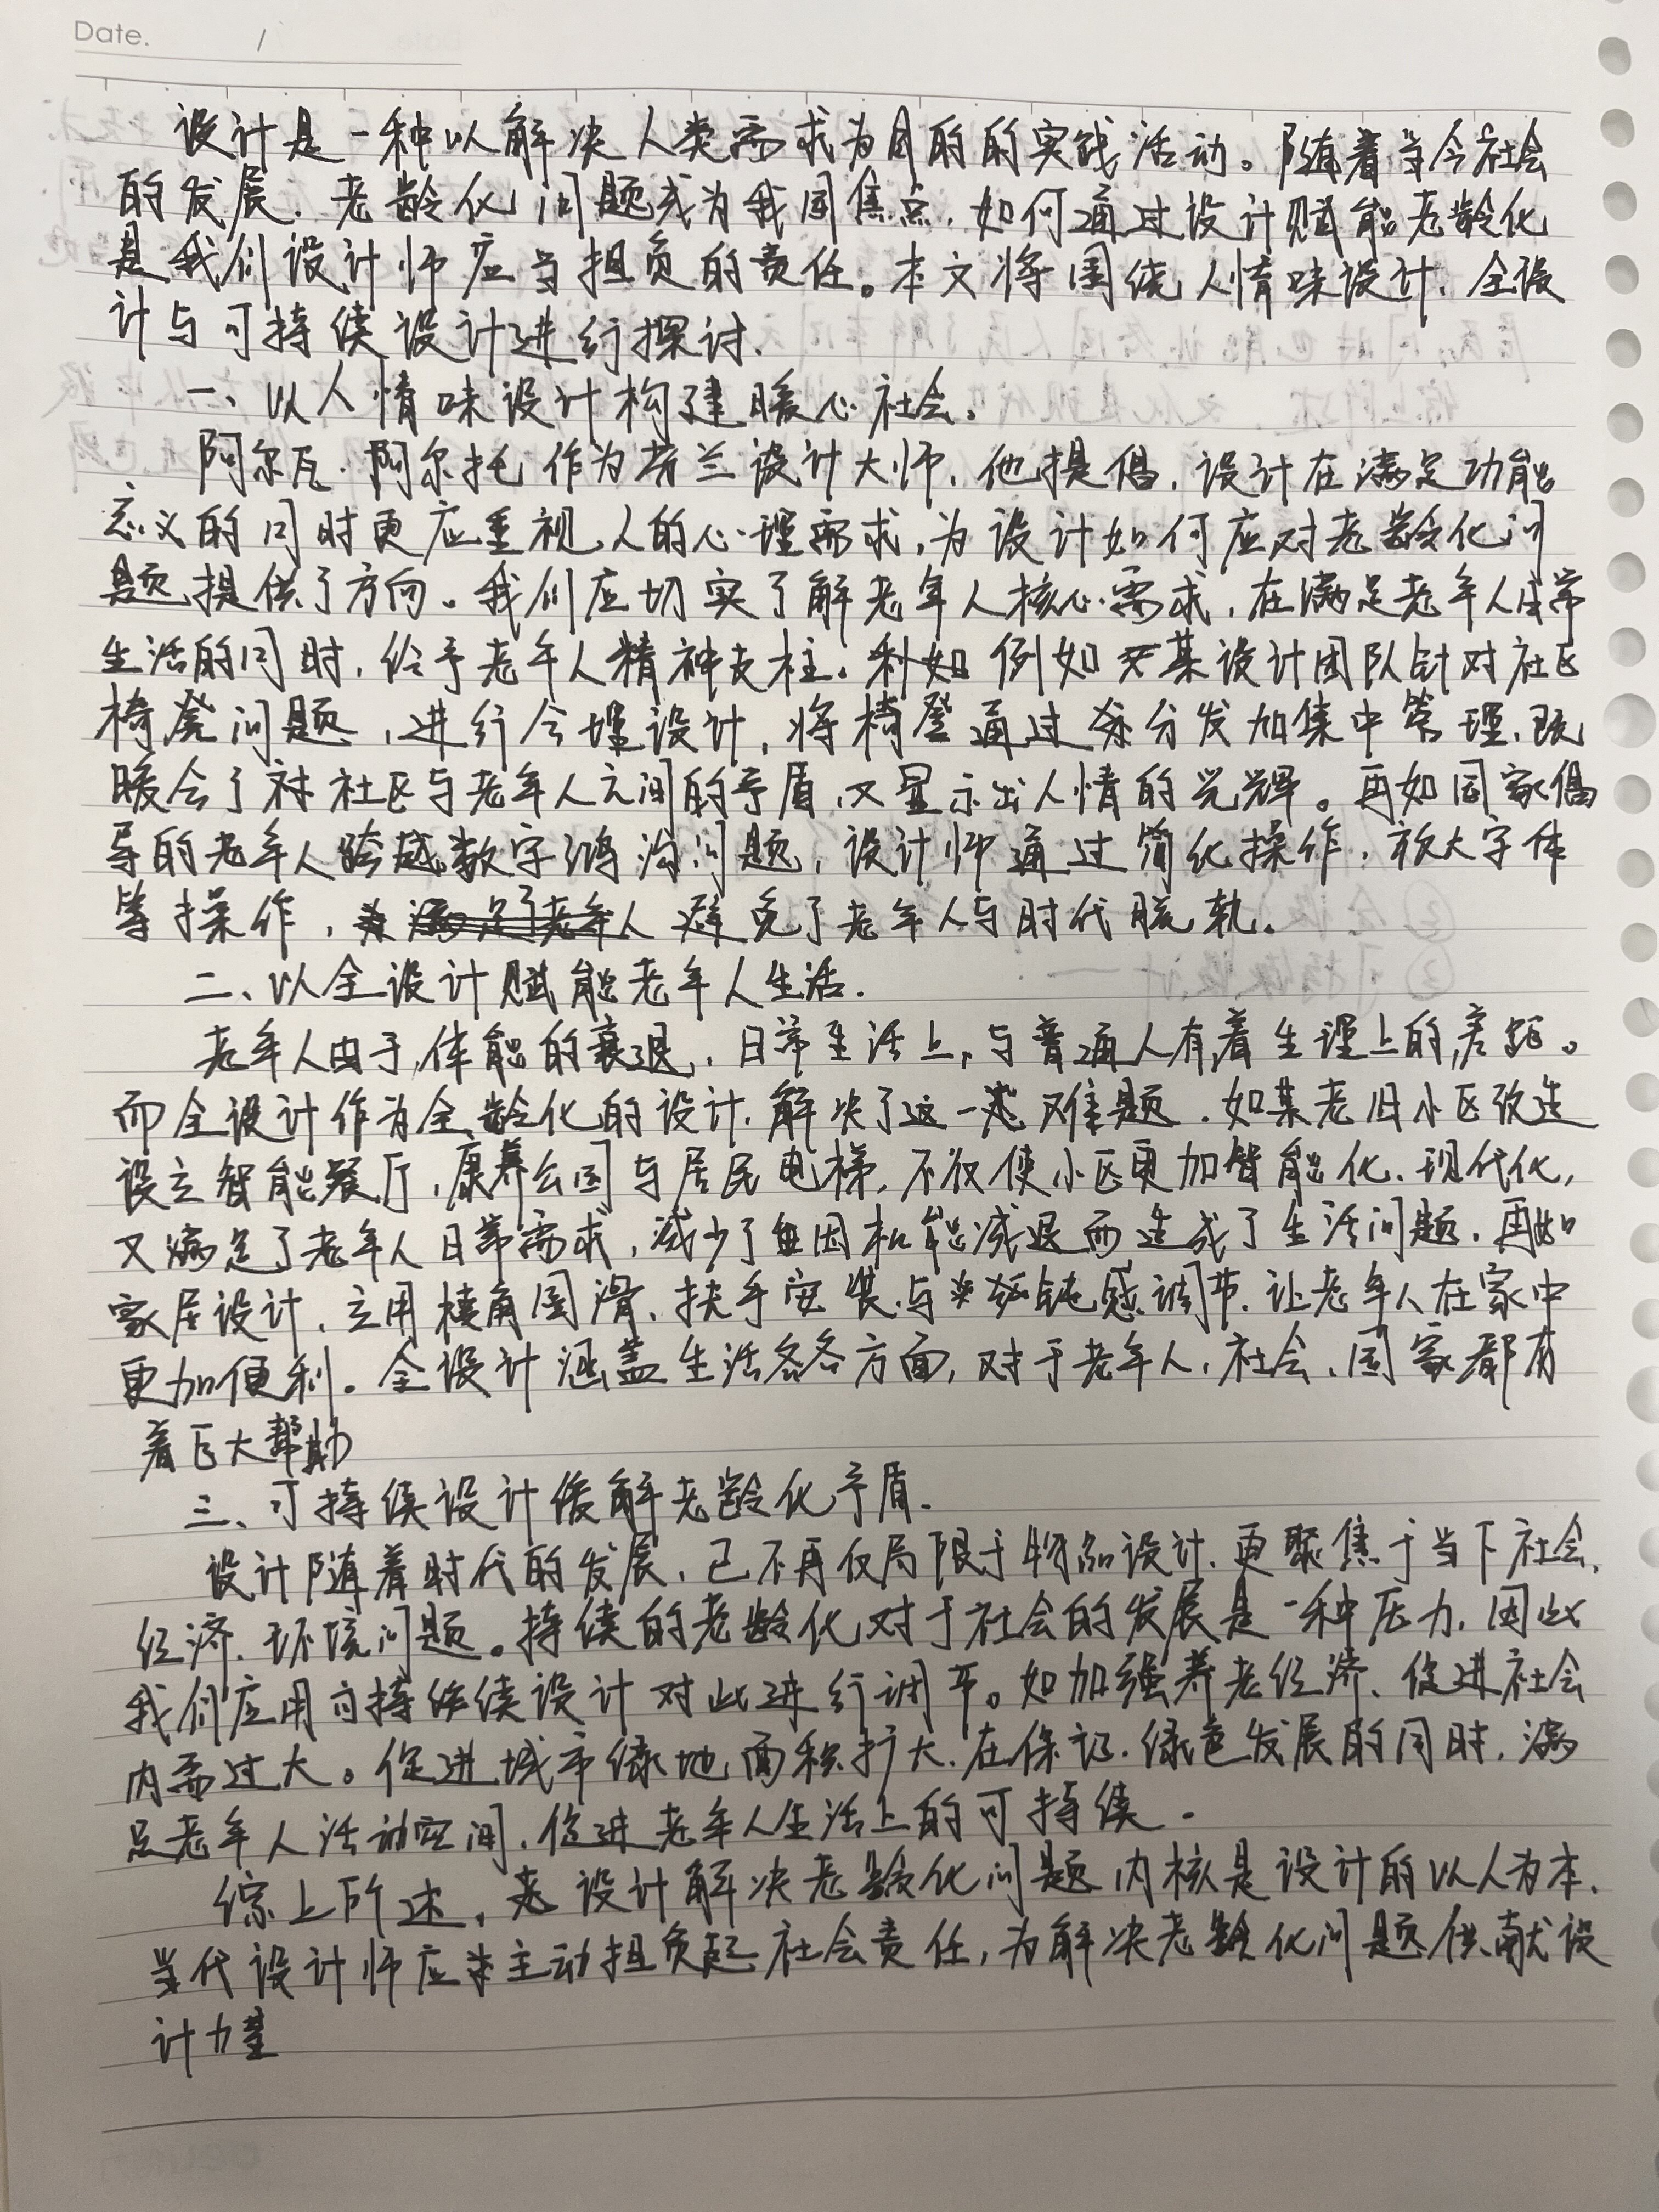 Date. /
设计是一种以解决人类需求为目的的实践活动。随着当今社会
的发展，老龄化问题成为我国焦点，如何通过设计赋能老龄化
是我们设计师应当担负的责任。本文将围绕人情味设计、全设
计与可持续设计进行探讨.
一、以人情味设计构建暖心社会。
阿尔瓦·阿尔托作为芬兰设计大师，他提倡，设计在满足功能
意义的同时更应重视人的心理需求，为设计如何应对老龄化问
题提供了方向。我们应切实了解老年人核心需求，在满足老年人日常
生活的同时，给予老年人精神支柱。利如 例如某设计团队针对社区
椅凳问题，进行合理设计，将椅凳通过分发加集中管理，既
暖会了社区与老年人之间的矛盾，又显示出人情的光辉。再如国家倡
导的老年人跨越数字鸿沟问题，设计师通过简化操作，放大字体
等操作，满足了老年人 避免了老年人与时代脱轨。
二、以全设计赋能老年人生活.
老年人由于体能的衰退，日常生活上，与普通人有着生理上的差距。
而全设计作为全龄化的设计，解决了这一难题．如某老旧小区改造
设立智能餐厅，康养公园与居民电梯，不仅使小区更加智能化、现代化，
又满足了老年人日常需求，减少了因机能减退而造成了生活问题．再如
家居设计，立用棱角圆滑、扶手安装与钝感调节，让老年人在家中
更加便利。全设计涵盖生活各各方面，对于老年人、社会、国家都有
着巨大帮助
三、可持续设计缓解老龄化矛盾.
设计随着时代的发展，已不再仅局限于物品设计，更聚焦于当下社会、
经济、环境问题。持续的老龄化对于社会的发展是一种压力，因此
我们应用可持续设计对此进行调节。如加强养老经济、促进社会
内需过大。促进城市绿地面积扩大，在保证绿色发展的同时，满
足老年人活动空间，促进老年人生活上的可持续．
综上所述，设计解决老龄化问题内核是设计的以人为本，
当代设计师应主动担负起社会责任，为解决老龄化问题供献设
计力量